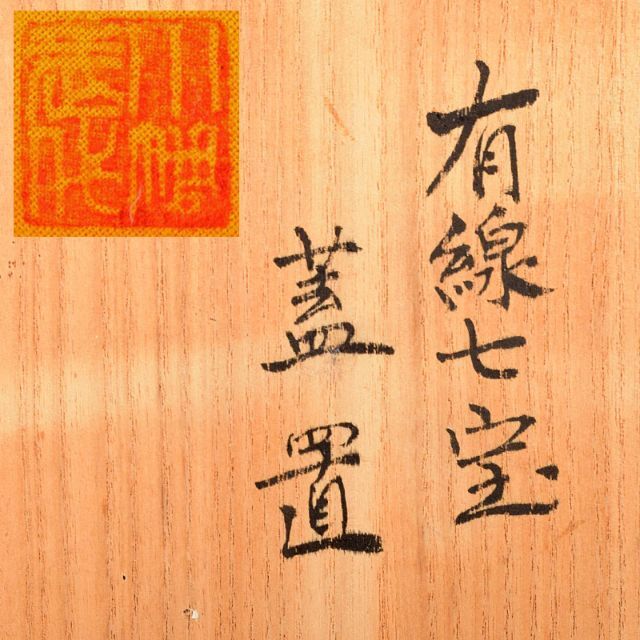 有線七宝
蓋置